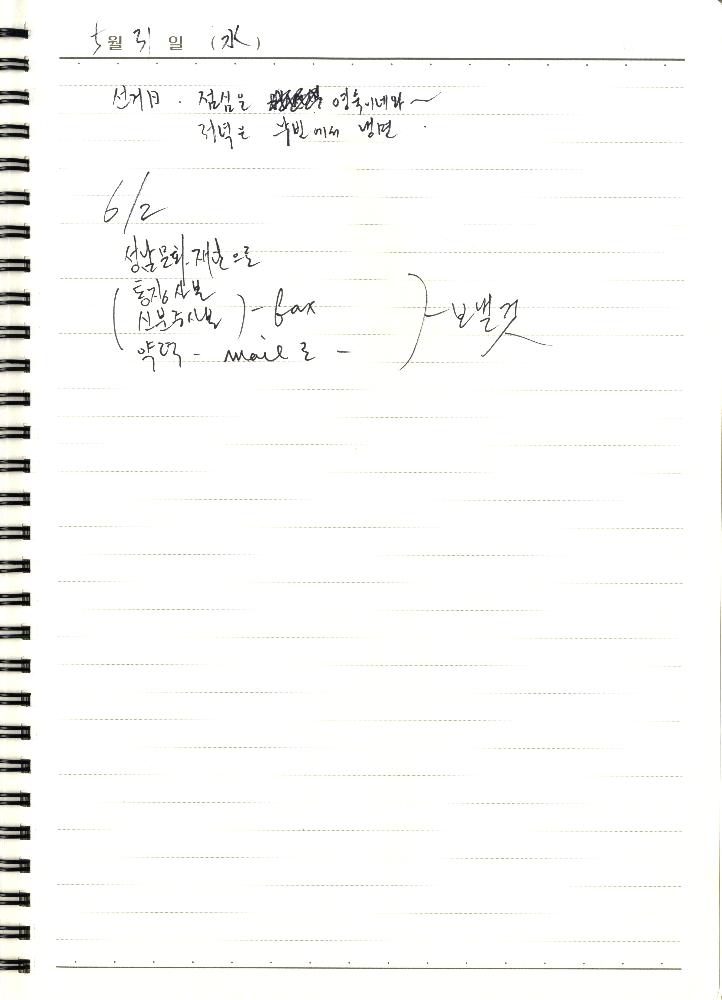 5월 31일 (水)
선거日. 점심을 영욱이네와~
저녁은 에서 냉면.
6/2
성남문화재단으로
(통장사본
신분증사본) - fax
약력 - mail로 - ) - 보낼 것